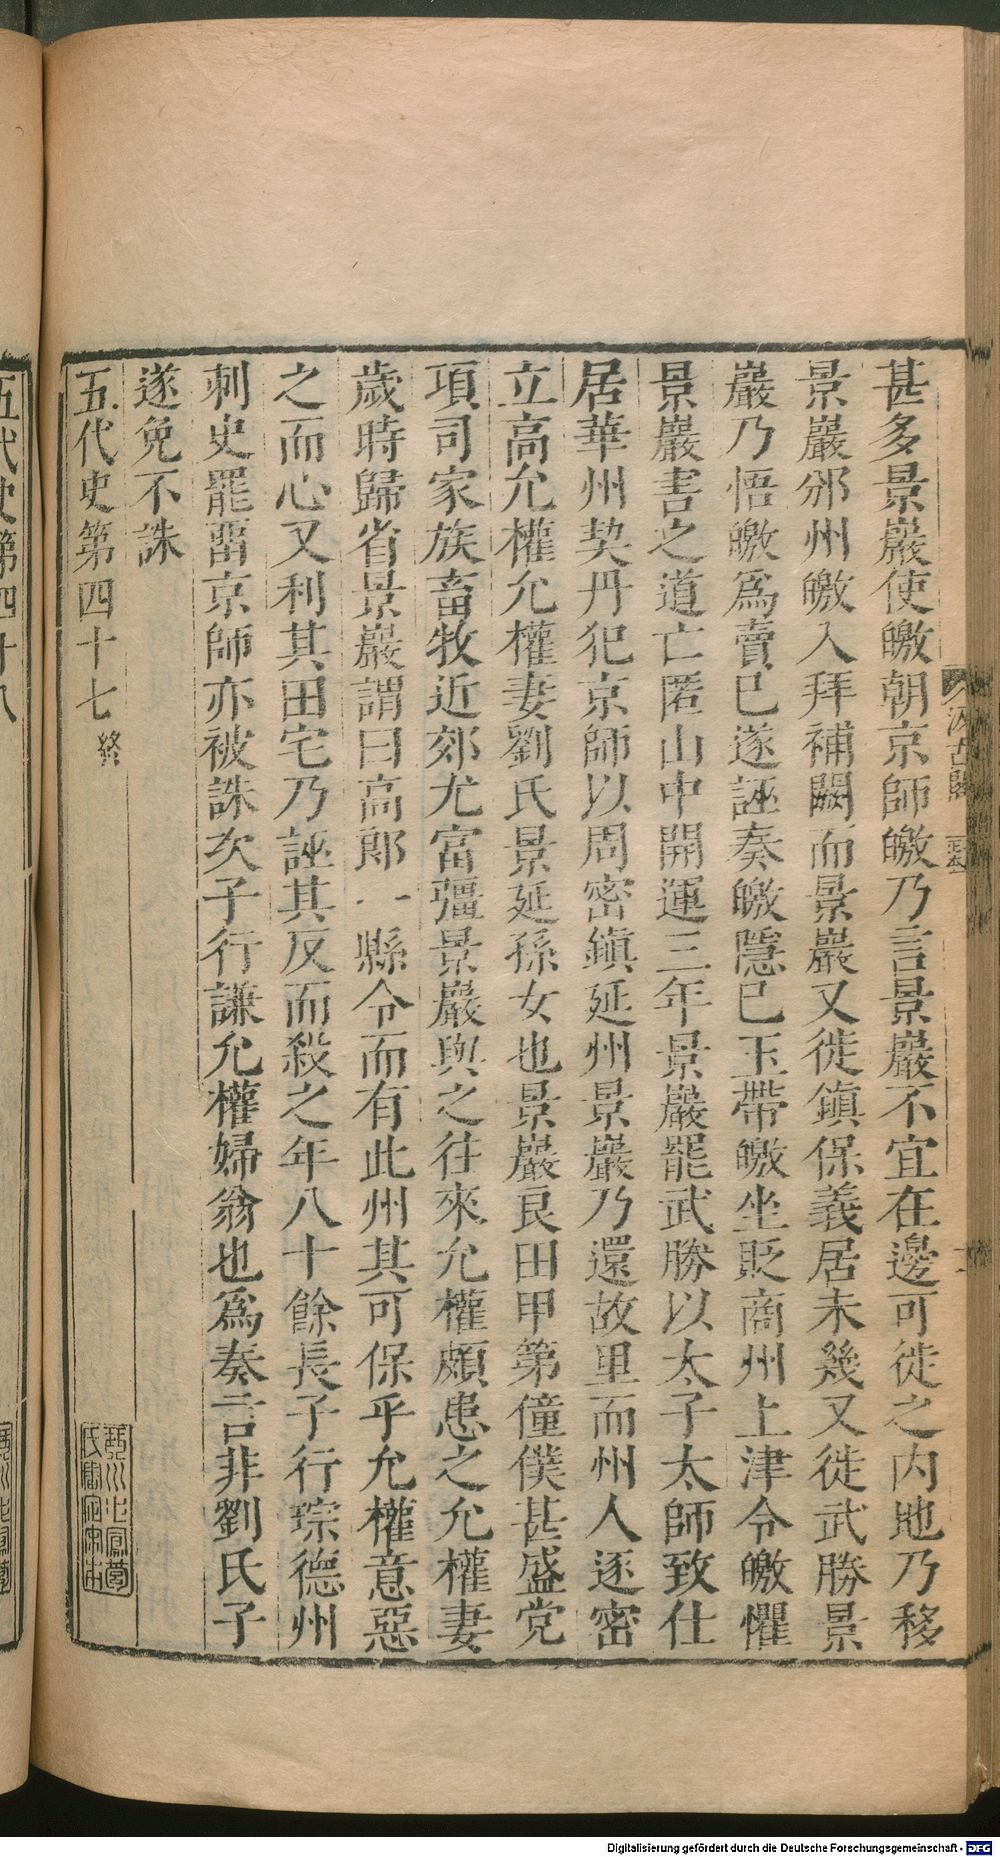 甚多景巖使皦朝京師皦乃言景巖不宜在邊可徙之內地乃移
景巖邠州皦入拜補闕而景巖又徙鎮保義居未幾又徙武勝景
巖乃悟皦爲賣已遂誣奏皦隱已玉帶皦坐貶商州上津令皦懼
景巖害之道亡匿山中開運三年景巖罷武勝以太子太師致仕
居華州契丹犯京師以周密鎮延州景巖乃還故里而州人逐密
立高允權允權妻劉氏景延孫女也景巖良田甲第僮僕甚盛党
項司家族畜牧近郊尤富彊景巖與之往來允權頗患之允權妻
歲時歸省景巖謂曰高郎一縣令而有此州其可保乎允權意惡
之而心又利其田宅乃誣其反而殺之年八十餘長子行琮德州
刺史罷畱京師亦被誅次子行謙允權婦翁也爲奏言非劉氏子
遂免不誅
五代史第四十七 終
琴川毛鳳苞
氏審定宋本
汲古閣
正本
五代史第四十八